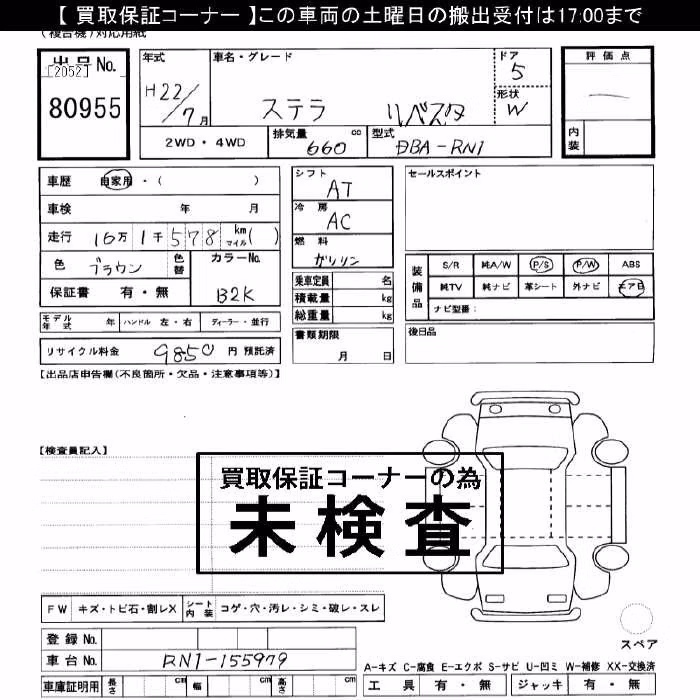 【 買取保証コーナー 】この車両の土曜日の搬出受付は17:00まで
(複合機)対応用紙
出品No.
[2052]
80955
年式
H22/7月
車名・グレード
ステラ リベスタ
ドア
5
形状
W
評価点
内装
2WD・4WD
排気量 660 cc
型式 DBA-RN1
車歴 自家用・( )
車検 年 月
走行 16万1千578 km マイル( )
色 ブラウン 色替
カラーNo.
B2K
保証書 有・無
シフト
AT
冷房
AC
燃料
ガソリン
乗車定員 名
積載量 kg
総重量 kg
セールスポイント
装備品
S/R 純A/W P/S P/W ABS
純TV 純ナビ 革シート 外ナビ エアB
ナビ型番:
モデル年式 年 ハンドル 左・右 ディーラー・並行
書類期限
月 日
後日品
リサイクル料金 9850 円 預託済
【出品店申告欄(不良箇所・欠品・注意事項等)】
【検査員記入】
買取保証コーナーの為
未検査
FW キズ・トビ石・割レX シート内装 コゲ・穴・汚レ・シミ・破レ・スレ
スペア
登録No.
車台No. RN1-155979
A-キズ C-腐食 E-エクボ S-サビ U-凹ミ W-補修 XX-交換済
車庫証明用 長さ cm 幅 cm 高さ cm
工具 有・無 ジャッキ 有・無